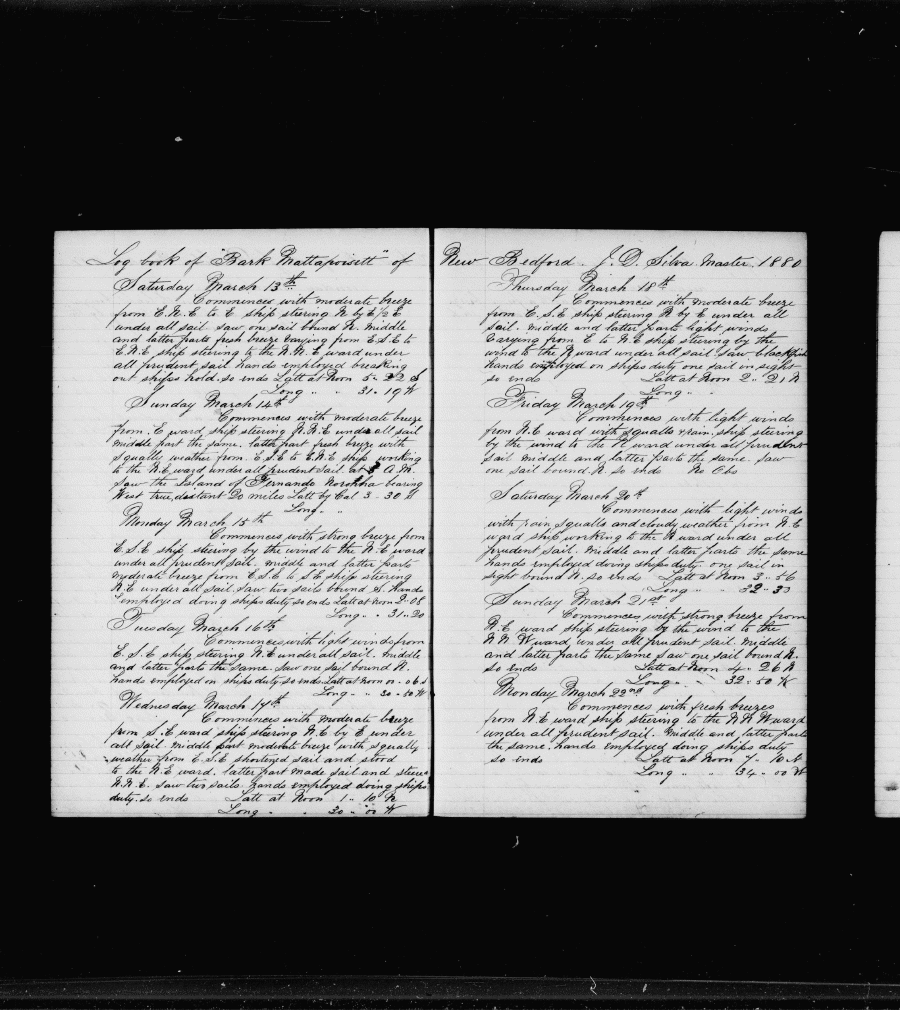 Log book of "Bark Mattapoisett" of
Saturday March 13th
Commences with moderate breeze
from E.N.E to E ship steering N by E ½ E
under all sail saw one sail bound N. Middle
and latter parts fresh breeze varying from E.S.E to
E.N.E ship steering to the N.N.E ward under
all prudent sail hands employed breaking
out ships hold. so ends Latt at Noon 5 - 22 S
Long " " 31 - 19 W
Sunday March 14th
Commences with moderate breeze
from E ward ship steering N.N.E under all sail
middle part the same. latter part fresh breeze with
squally weather from E.S.E to E.N.E ship working
to the N.E ward under all prudent sail at A.M.
saw the Island of Fernando Noronha bearing
West true, distant 20 miles Latt by Cal 3 - 30 S
Long " "
Monday March 15th
Commences with strong breeze from
E.S.E ship steering by the wind to the N.E ward
under all prudent sail. Middle and latter parts
moderate breeze from E.S.E to S.E ship steering
N.E under all sail saw two sails bound S. Hands
employed doing ships duty so ends Latt at Noon 2 - 08
Long " " 31 - 20
Tuesday March 16th
Commences with light winds from
E.S.E ship steering N.E under all sail. Middle
and latter parts the same. Saw one sail bound N.
hands employed on ships duty so ends Latt at Noon 00 - 06 S
Long " " 30 - 40 W
Wednesday March 17th
Commences with moderate breeze
from S.E ward ship steering N.E by E under
all sail. Middle part moderate breeze with squally
weather from E.S.E shortened sail and stood
to the N.E ward. latter part made sail and steered
N.N.E. saw two sails. hands employed doing ships
duty. so ends Latt at Noon 1 - 10 N
Long " " 30 - 00 W
New Bedford. J. D. Silva. Master. 1880
Thursday March 18th
Commences with moderate breeze
from E.S.E ship steering N by E under all
sail. Middle and latter parts light winds
varying from E to N.E ship steering by the
wind to the N ward under all sail. Saw blackfish
hands employed on ships duty one sail in sight
so ends Latt at Noon 2 - 21 N
Long " "
Friday March 19th
Commences with light winds
from N.E ward with squalls & rain. ship steering
by the wind to the N ward under all prudent
sail middle and latter parts the same. Saw
one sail bound N. so ends No Obs
Saturday March 20th
Commences with light winds
with rain squalls and cloudy weather from N.E
ward ship working to the N ward under all
prudent sail. Middle and latter parts the same
hands employed doing ships duty. one sail in
sight bound N. so ends Latt at Noon 3 - 56
Long " " 32 - 33
Sunday March 21st
Commences with strong breeze from
N.E ward ship steering by the wind to the
N.N.W ward under all prudent sail. Middle
and latter parts the same saw one sail bound N.
so ends Latt at Noon 4 - 26 N
Long " " 32 - 50 W
Monday March 22nd
Commences with fresh breezes
from N.E ward ship steering to the N.N.W ward
under all prudent sail. Middle and latter parts
the same. hands employed doing ships duty
so ends Latt at Noon 7 - 10 N
Long " " 34 - 00 W